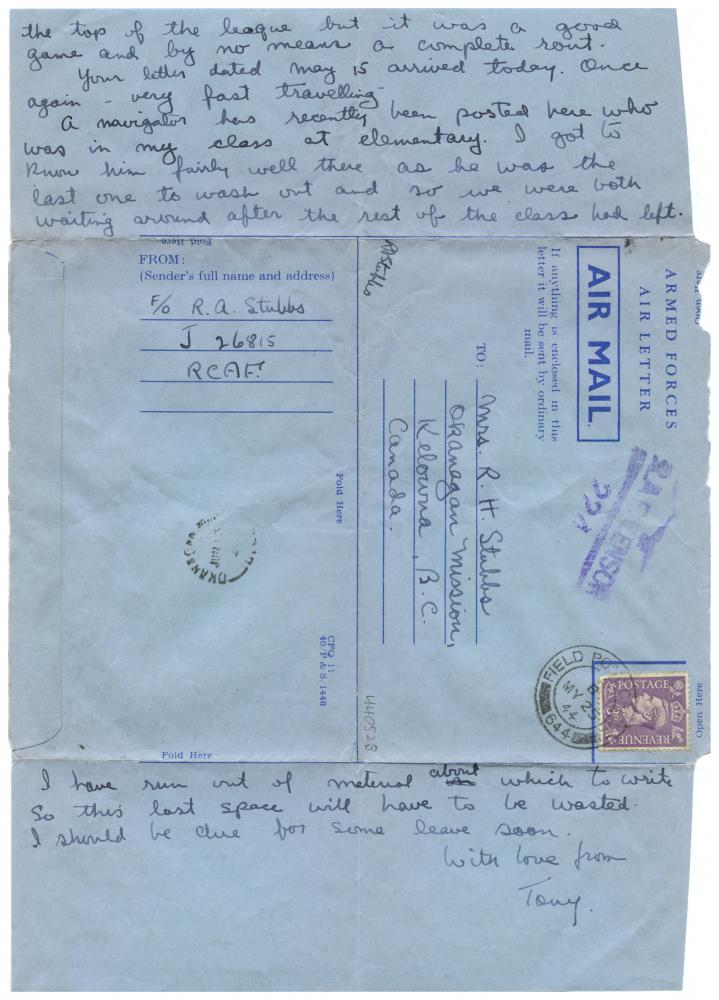 the top of the league but it was a good
game and by no means a complete rout.
Your letter dated May 15 arrived today. Once
again - very fast travelling.
A navigator has recently been posted here who
was in my class at elementary. I got to
know him fairly well there as he was the
last one to wash out and so we were both
waiting around after the rest of the class had left.
Fold Here
FROM:
(Sender's full name and address)
F/O R.A. Stubbs
J 26815
RCAF.
Fold Here
CFQ 11
40/P & S/1448
Fold Here
ARMED FORCES
AIR LETTER
AIR MAIL.
If anything is enclosed in this
letter it will be sent by ordinary
mail.
RAStubbs
TO:
Mrs. R. H. Stubbs
Okanagan Mission,
Kelowna, B.C.
Canada.
R.A.F. CENSOR
FIELD POST
MY 23
44
644
POSTAGE
3D
REVENUE
Open Here
440523
I have run out of material about which to write
So this last space will have to be wasted.
I should be due for some leave soon.
With love from
Tony.